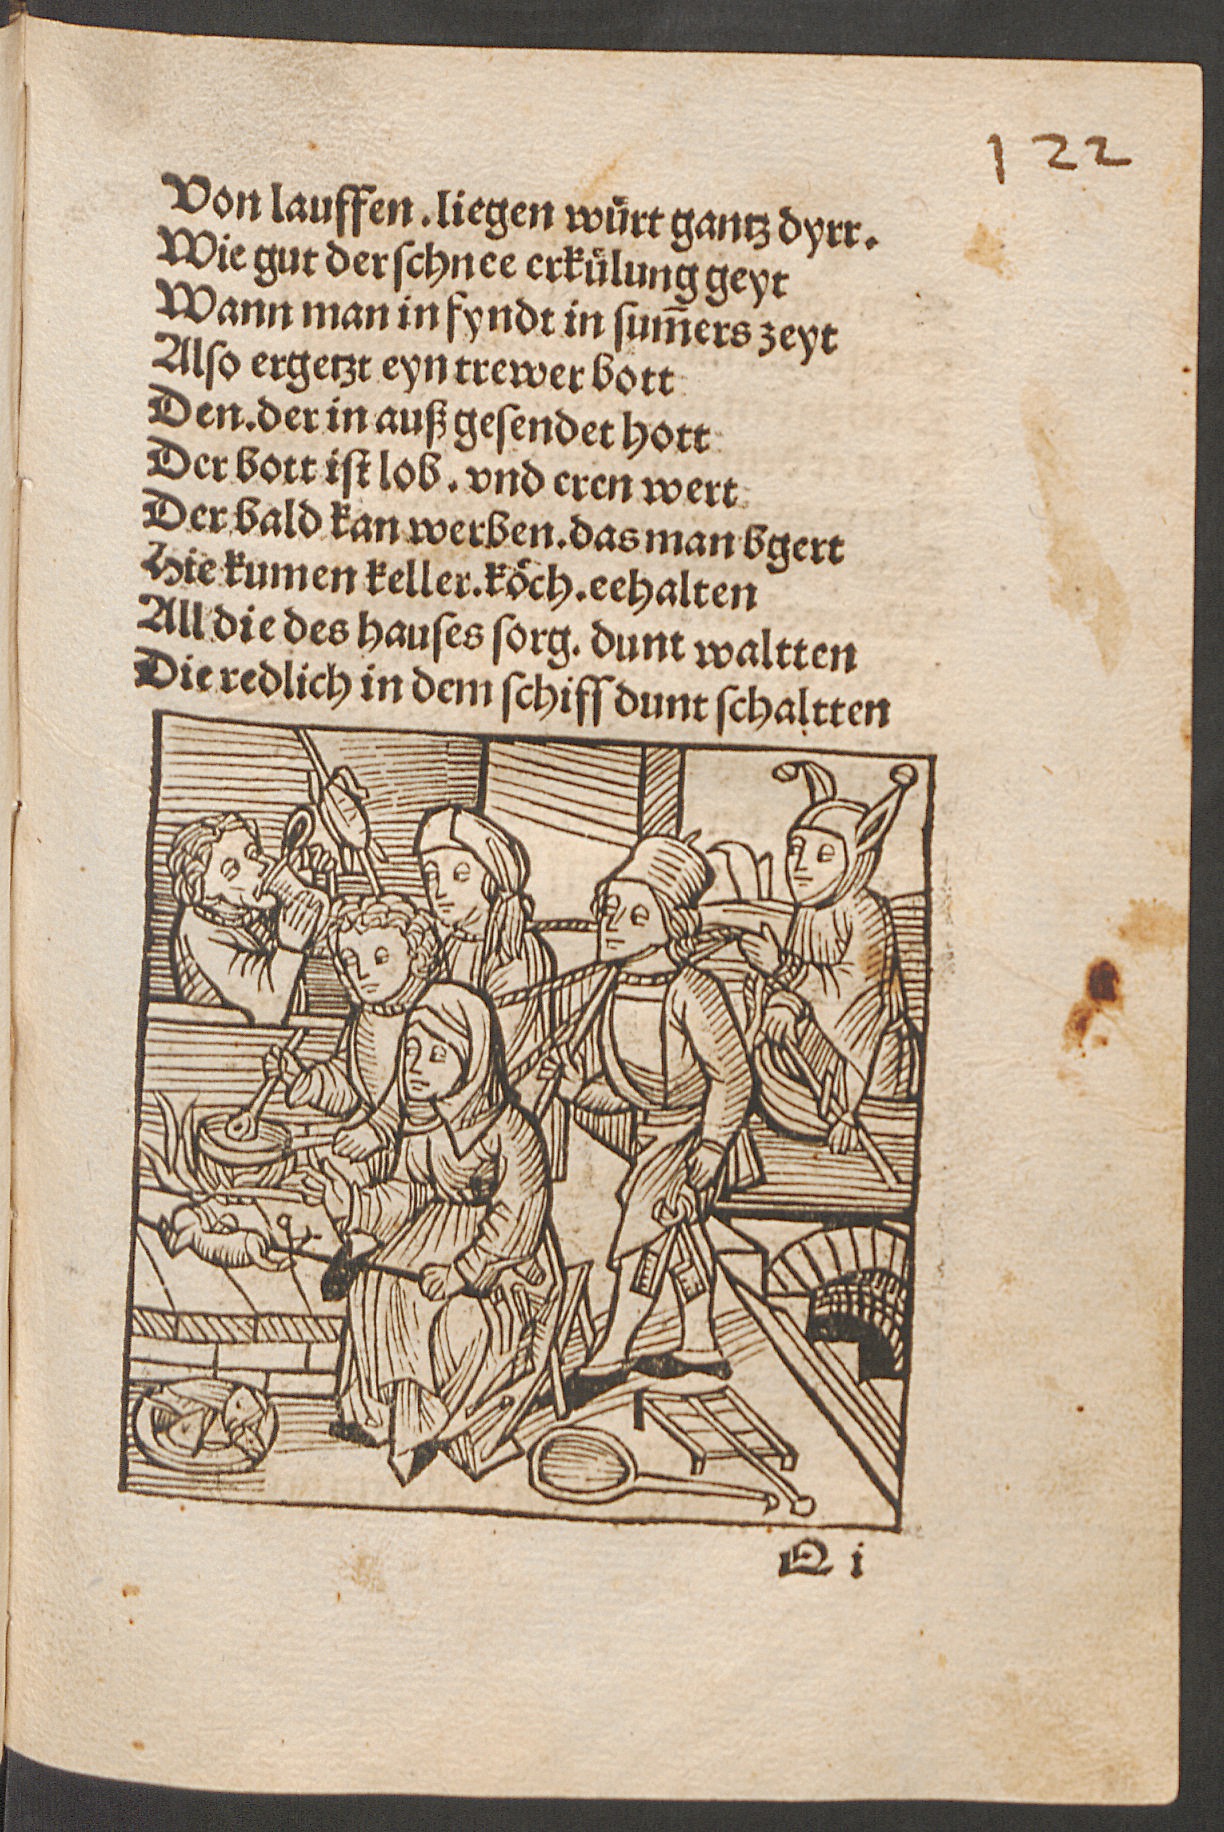 122
Von lauffen .liegen wuͤrt gantz dyrr.
Wie gut der ſchnee erkuͤlung geyt
Wann man in fyndt in ſum̄ers zeyt
Alſo ergetzt eyn trewer bott
Den.der in auß geſendet hott
Der bott iſt lob . vnd eren wert
Der bald kan werben.das man bgert
Hie kumen keller.koͤch.eehalten
All die des hauſes ſorg. dunt waltten
Die redlich in dem ſchiff dunt ſchaltten
Q i